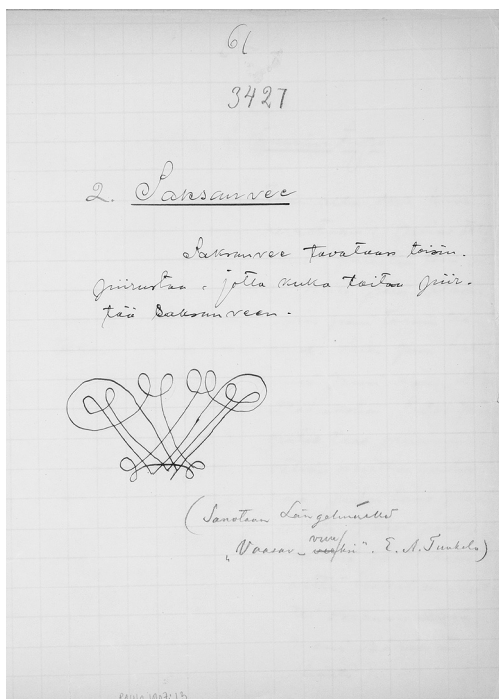 61
3427
2. Saksanvee
Saksanvee tavataan toisin.
piirustaa, jotta kuka taitaa piir-
tää Saksanveen.
(Sanotaan Längelmäellä
"Vaasan-
E. A. Tunkelo)